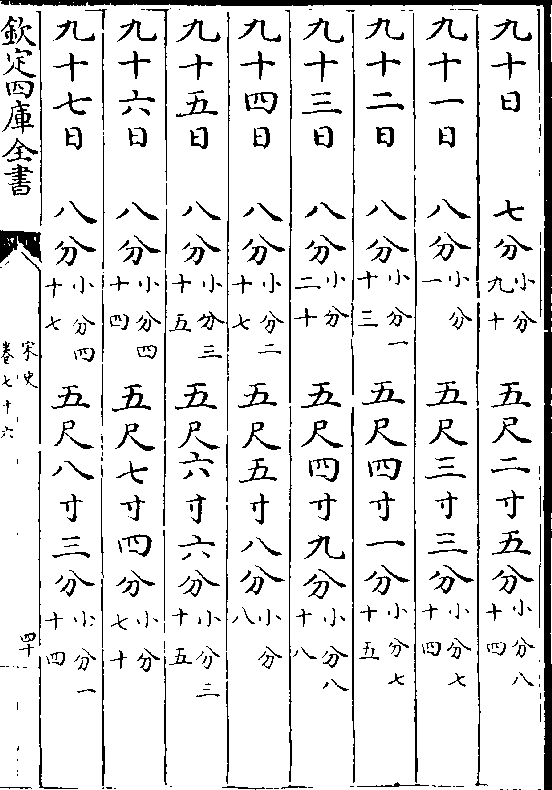 九十日 七分小分九十 五尺二寸五分小分八十四
九十一日 八分小分一 五尺三寸三分小分七十四
九十二日 八分小分一十三 五尺四寸一分小分七十五
九十三日 八分小分二十 五尺四寸九分小分八十八
九十四日 八分小分二十七 五尺五寸八分小分八
九十五日 八分小分三十五 五尺六寸六分小分三十五
九十六日 八分小分四十四 五尺七寸四分小分七十
九十七日 八分小分四十七 五尺八寸三分小分一十四
欽定四庫全書
宋史
卷七十六
四十